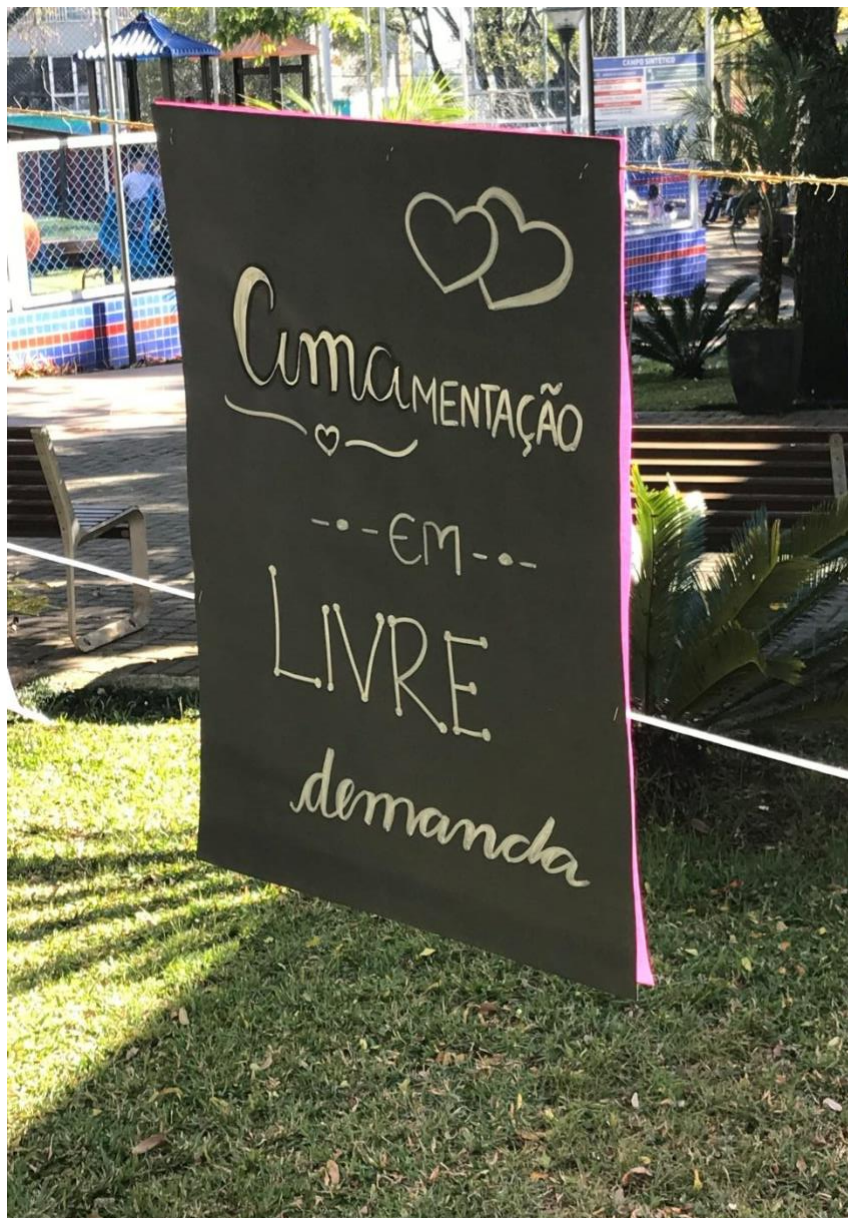 CAMPO SINTÉTICO
amaMENTAÇÃO
EM
LIVRE
demanda